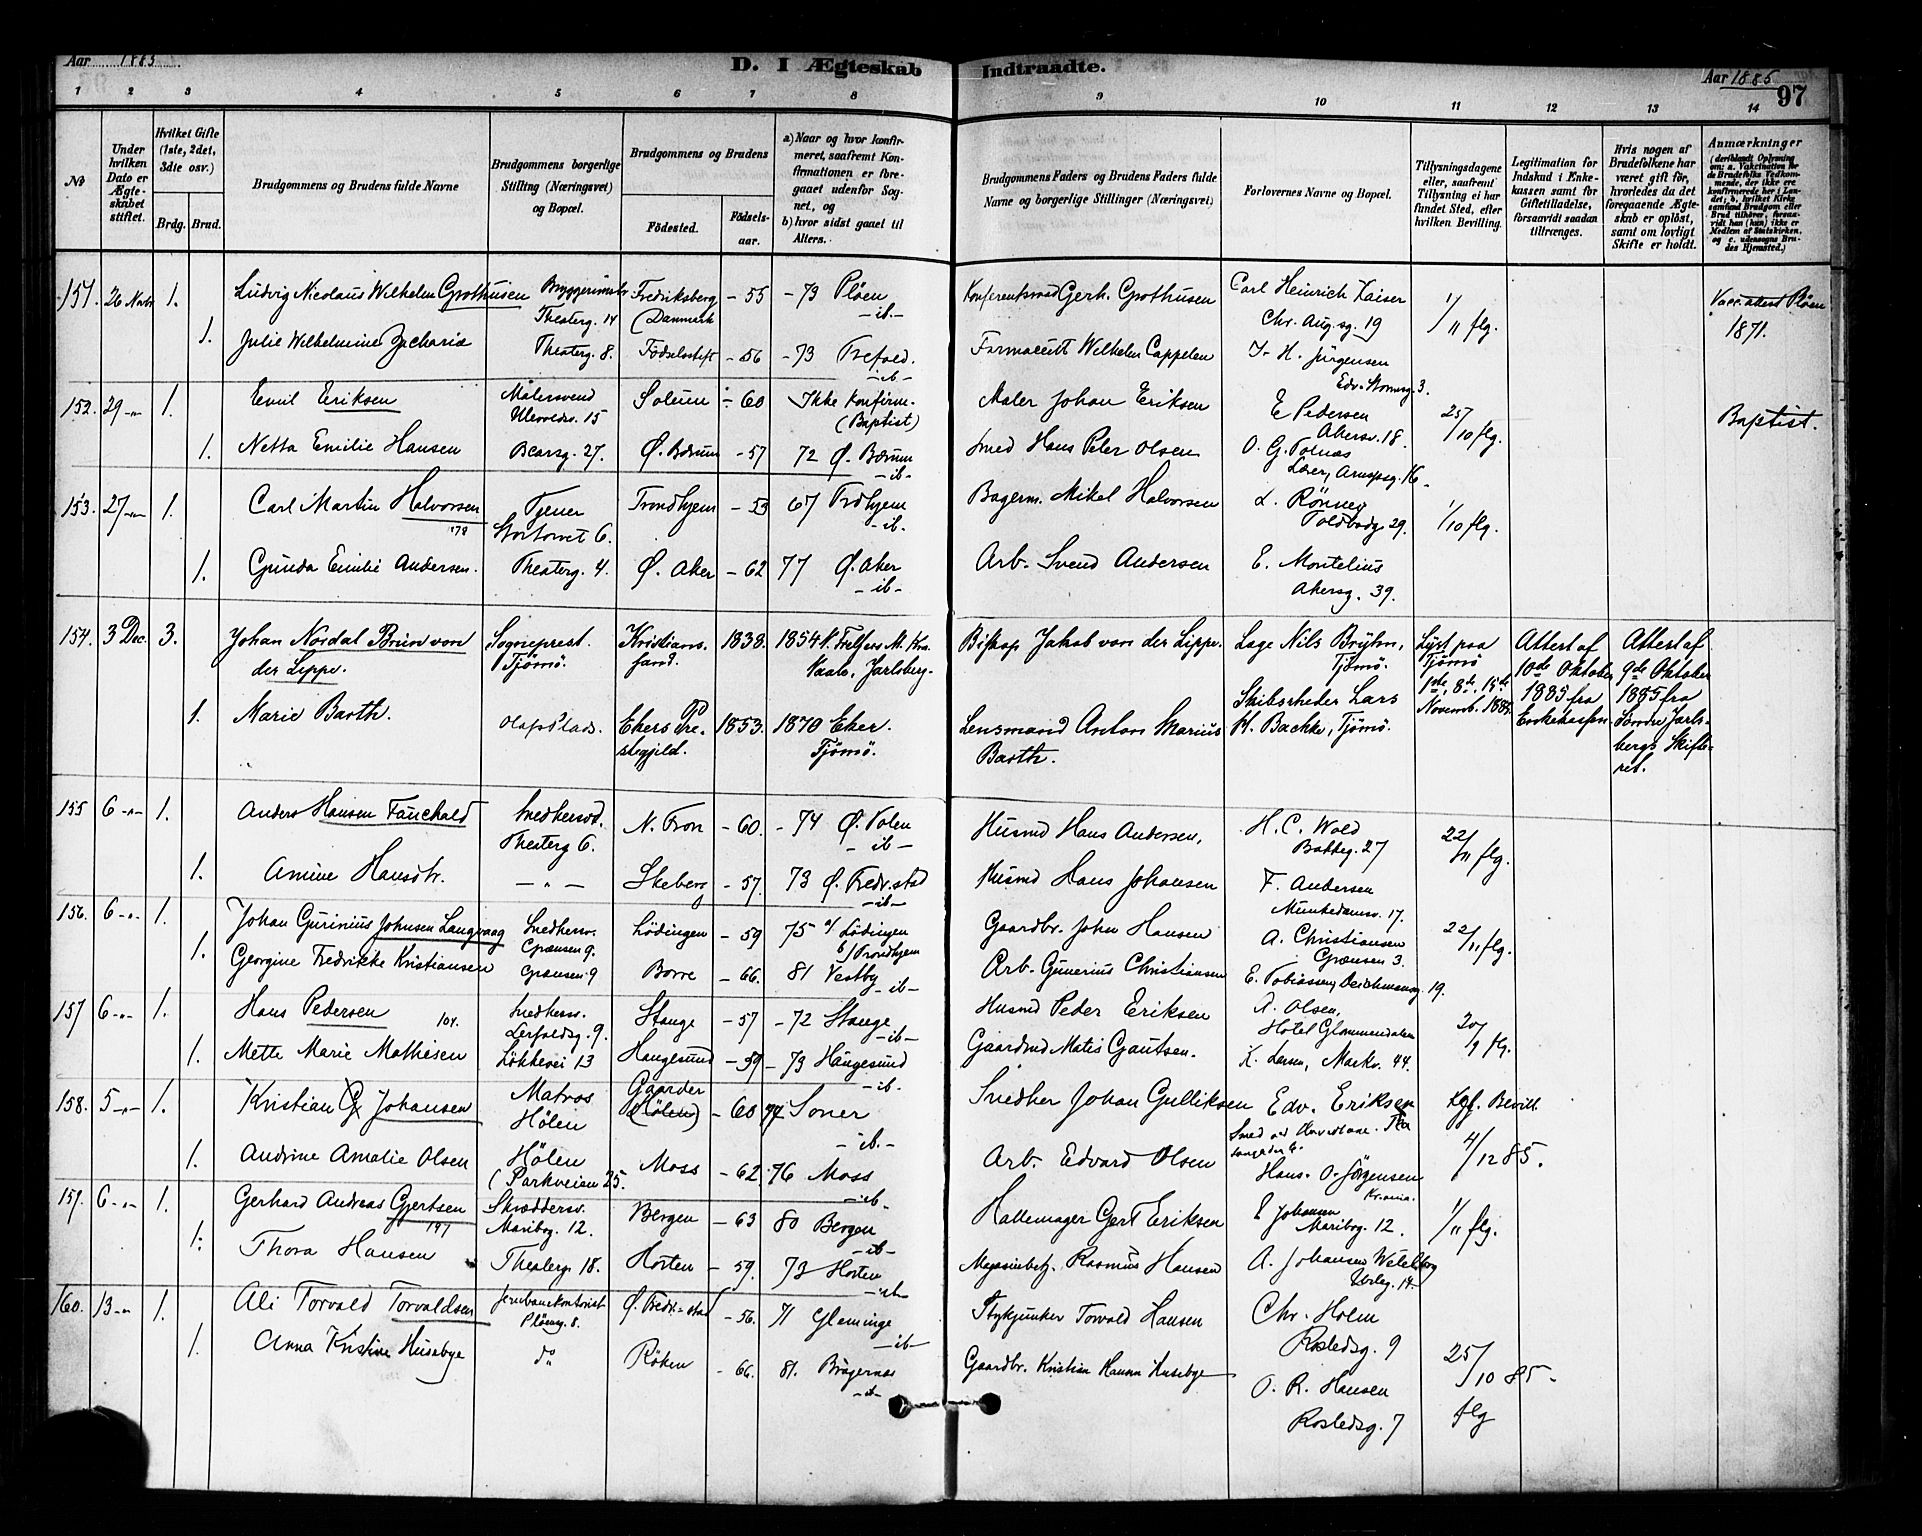 Aar 1885
D. I Ægteskab Indtraadte.
Aar 1885
97
1 2 3 4 5 6 7 8 9 10 11 12 13 14
No
Under hvilken Dato er Ægteskabet stiftet.
Hvilket Gifte (1ste, 2det, 3die osv.)
Brdg. Brud.
Brudgommens og Brudens fulde Navne
Brudgommens borgerlige Stilling (Næringsvei) og Bopæl.
Brudgommens og Brudens
Födested. Födsels-aar.
a) Naar og hvor konfirmeret, saafremt Konfirmationen er foregaaet udenfor Sognet, og
b) hvor sidst gaaet til Alters.
Brudgommens Faders og Brudens Faders fulde Navne og borgerlige Stillinger (Næringsvei)
Forlovernes Navne og Bopæl.
Tillysningsdagene eller, saafremt Tillysning ei har fundet Sted, efter hvilken Bevilling.
Legitimation for Indskud i Enkekassen samt for Giftetilladelse, forsaavidt saadan tiltrænges.
Hvis nogen af Brudefolkene har været gift för, hvorledes da det foregaaende Ægteskab er oplöst, samt om lovligt Skifte er holdt.
Anmærkninger
151. 26 Novbr 1. Ludvig Nicolaus Wilhelm Grothusen Theaterg. 14 Fredriksberg (Danmark - 55 - 73 Pløen -ib.- Konferentsraad Gerh. Grothusen Carl Heinrich Kaiser Chr. Aug. sg. 19 1/11 flg. Vacc. attest Pløen 1871.
1. Julie Wilhelmine Zachariæ Theaterg. 8. Födselsstift - 56 - 73 Trefold. -ib- Farmaceut Wilhelm Cappelen J. H. Jürgensen Edv. Stormsg. 3.
152. 29 -"- 1. Emil Eriksen Malersvend Ullevoldsv. 15 Soleum - 60 Ikke Konfirm. (Baptist) Maler Johan Eriksen E Pedersen Akersv. 18. 25/10 flg. Baptist.
1. Netta Emilie Hansen 27. Ø. Bærum - 57 72 Ø. Bærum -ib- Smed Hans Peter Olsen O. G. Tolnæs Lærer, 16-
153. 27 -"- 1. Carl Martin Halvorsen 178 Tjener Stortorvet 6. Trondhjem - 53 67 Trdhjem -ib. Bagerm. Mikel Halvorsen L. Rönney Toldbodg. 29. 1/10 flg.
1. Gunda Emilie Andersen. Theaterg. 4. Ø. Aker - 62 77 Ø. Aker -ib- Arb. Svend Andersen E. Montelius Akersg. 39.
154. 3 Dec. 3. Johan Nordal Brun von der Lippe. Sogneprest. Tjömö. Kristianssand. 1838. 1854 V. Frelsers M. Vaale, Jarlsberg. Biskop Jakob von der Lippe. Læge Nils Bryhn, Tjömö. Lyst paa Tjömö 1ste, 8de, 15de Novemb. 1885. Attest af 10de Oktober 1885 fra Enkekassen. Attest af 9de Oktober 1885 fra Söndre Jarlsbergs Skifteret.
1. Marie Barth. Olafs Plads. Ekers Præstegjeld. 1853. 1870 Eker. Tjömö. Lensmand Anton Marius Barth. Skibsrheder Lars H. Bache, Tjömö.
155 6 -"- 1. Anders Hansen Fauchald Snedkersvd. Theaterg 6. N. Fron - 60. - 74 Ø. Tolen -ib- Husmd Hans Andersen, H. C. Wold Bakkeg. 27 22/11 flg.
1. Amine Hansdtr. -"- Skeberg - 57. 73 Ø. Fredr.stad -ib- Husmd Hans Johansen F. Andersen Munkedamsv. 17.
156. 6 -"- 1. Johan Gurinius Johnsen Langvaag Snedkersv. Grænsen 9. Lödingen - 59 75 a/ Lödingen b/ Trondhjem Gaardbr. John Hansen A. Christiansen Grænsen 3. 22/11 flg.
1. Georgine Fredrikke Kristiansen Grænsen 9 Borre - 66. 81 Vestby -ib- Arb. Gunerius Christiansen E. Tobiassen, Deichmansg. 19.
157 6 -"- 1. Hans Pedersen 104. Snedkersv. Lerfaldsg. 9. Stange - 57 - 72 Stange -ib- Husmd Peder Eriksen A. Olsen, Hotel Glommendalen 20/9 flg.
1. Mette Marie Mathisen Løkkevei 13 Haugesund - 59 - 73 Haugesund -ib. Gaardmd Matis Gautsen. K. Larsen, Markv. 44.
158. 5 -"- 1. Kristian G. Johansen Matros Hölen Gaarder (Hölen) - 60 77 Soner -ib.- Snedker Johan Gulliksen Edv. Eriksen Kgl. Bevill. 4/12 85.
1. Andrine Amalie Olsen Hölen (Parkveien 25. Moss - 62. 76 Moss -ib- Arb. Edvard Olsen Hans. O. Jörgensen Kr.ania.
159. 6 -"- 1. Gerhard Andreas Gjertsen 191 Skræddersv. Maribog. 12. Bergen - 63 80 Bergen -ib- Hattemager Gert Eriksen E Johansen Maribog. 12. 1/11 flg.
1. Thora Hansen Theaterg. 18. Horten - 59. 73 Horten -ib- Magasinbetj. Rasmus Hansen A. Johansen 14-
160. 13 -"- 1. Ali Torvald Torvaldsen Jernbanekontorist Plöensg. 8. Ø. Fredr.stad - 56. 71 Glemminge -ib- Stykjunker Torvald Hansen Chr. Holm Rosledsg. 9 25/10 85- flg
1. Anna Kristine Husebye do Röken - 66. 81. Bragernæs -ib- Gaardbr. Kristian Hansen Husebye O. R. Hansen Rosledsg. 7